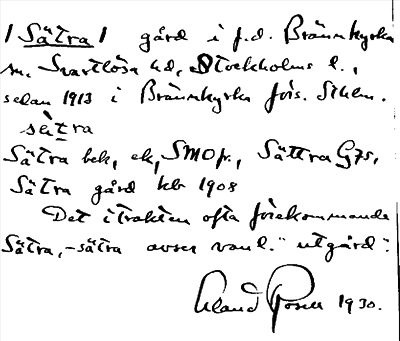 /Sätra/ gård i f.d. Brännkyrka
sn. Svartlösa hd, Stockholms l.,
sedan 1913 i Brännkyrka förs. Sthlm.
sètra
Sätra bek, ek, SMOp., Sättra G75,
Sätra gård kbr 1908
Det i trakten ofta förekommande
Sätra, -sätra avser vanl. "utgård".
Erland Rosell 1930.